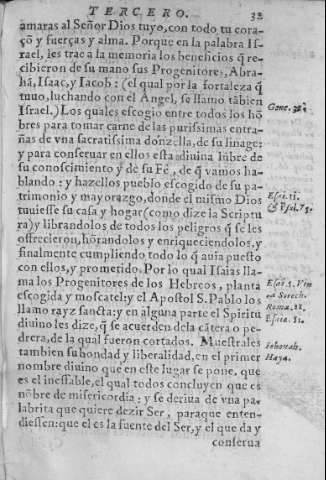 TERCERO. 32
amaras al Señor Dios tuyo, con todo tu cora-
çõ y fuerças y alma. Porque en la palabra Is-
rael, les trae a la memoria los beneficios q̃ re-
cibieron de su mano sus Progenitores, Abra-
hã, Isaac, y Iacob: (el qual por la fortaleza q̃
tuuo, luchando con el Angel, se llamo tãbien
Israel.) Los quales escogio entre todos los hõ
bres para tomar carne de las purissimas entra-
ñas de vna sacratissima donzella, de su linage:
y para conseruar en ellos esta diuina lũbre de
su conoscimiento y de su Fè, de q̃ vamos ha-
blando: y hazellos pueblo escogido de su pa-
trimonio y mayorazgo, donde el mismo Dios
tuuiesse su casa y hogar (como dize la Scriptu
ra) y librandolos de todos los peligros q̃ se les
offrecieron, hõrandolos y enriqueciendolos, y
finalmente cumpliendo todo lo q̃ auia puesto
con ellos, y prometido. Por lo qual Isaias lla-
ma los Progenitores de los Hebreos, planta
escogida y moscatel: y el Apostol S. Pablo los
llamo rayz sancta: y en alguna parte el Spiritu
diuino les dize, q̃ se acuerden de la cãtera o pe-
drera, de la qual fueron cortados. Muestrales
tambien su bondad y liberalidad, en el primer
nombre diuino que en este lugar se pone, que
es el ineffable, el qual todos concluyen que es
nõbre de misericordia: y se deriua de vna pa-
labrita que quiere dezir Ser, paraque enten-
diessen: que el es la fuente del Ser, y el que da y
conserua
Gene. 32.
Esai. 5. Vin
ea Sorech.
Roma. 11.
Esaia. 51.
Iehouah.
Haya.